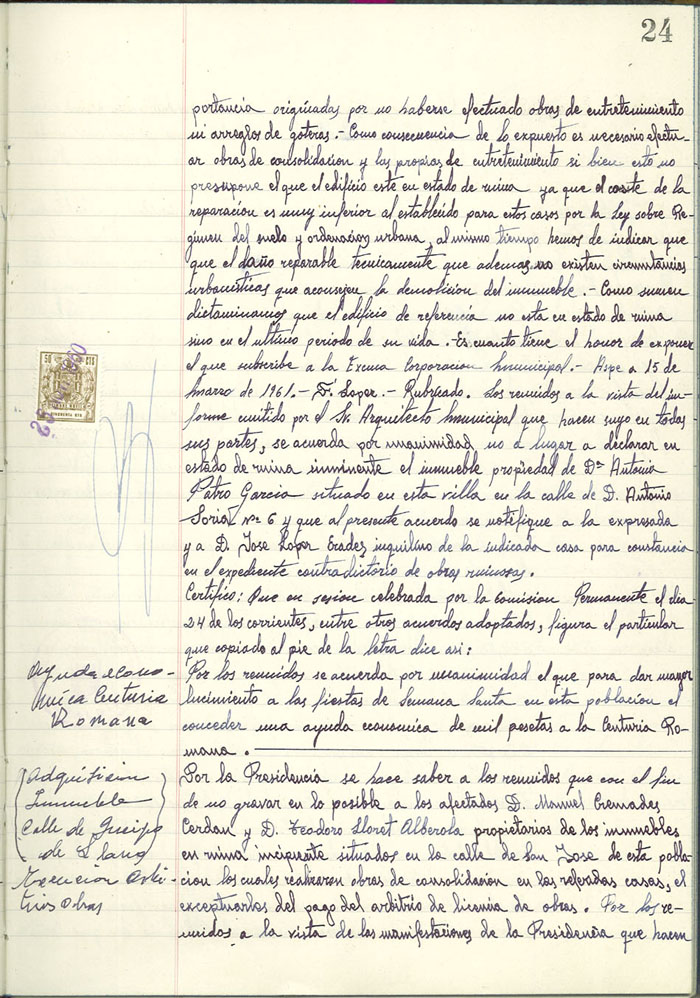 24
portancia originadas por no haberse efectuado obras de entretenimiento
ni arreglos de goteras.- Como consecuencia de lo expuesto es necesario efectu-
ar obras de consolidacion y las propias de entretenimiento si bien esto no
presupone el que el edificio este en estado de ruina ya que el coste de la
reparacion es muy inferior al establecido para estos casos por la Ley sobre Re-
gimen del suelo y ordenacion urbana, al mismo tiempo hemos de indicar que
que el daño reparable tecnicamente que ademas no existen circunstancias
urbanisticas que aconsejen la demolicion del inmueble.- Como
dictaminamos que el edificio de referencia no esta en estado de ruina
sino en el ultimo periodo de su vida.- Es cuanto tiene el honor de exponer
el que subscribe a la Excma Corporacion Municipal.- Aspe a 15 de
Marzo de 1961.- F. Lopez.- Rubricado. Los reunidos a la vista del in-
forme emitido por el Sr. Arquitecto Municipal que hacen suyo en todas
sus partes, se acuerda por unanimidad no a lugar a declarar en
estado de ruina inminente el inmueble propiedad de Dª Antonia
Patro Garcia situado en esta villa en la calle de D. Antonio
Soria Nº 6 y que al presente acuerdo se notifique a la expresada
y a D. Jose Lopez Erades inquilino de la indicada casa para constancia
en el expediente contradictorio de obras ruinosas.
Certifico: Que en sesion celebrada por la Comision Permanente el dia
24 de los corrientes, entre otros acuerdos adoptados, figura el particular
que copiado al pie de la letra dice asi:
Por los reunidos se acuerda por unanimidad el que para dar mayor
lucimiento a las fiestas de Semana Santa en esta poblacion el
conceder una ayuda economica de mil pesetas a la Centuria Ro-
mana.
Por la Presidencia se hace saber a los reunidos que con el fin
de no gravar en lo posible a los afectados D. Manuel Cremades
Cerdan y D. Teodoro Lloret Alberola propietarios de los inmuebles
en ruina incipiente situados en la calle de San Jose de esta pobla-
cion los cuales realizaren obras de consolidacion en las referidas casas, el
exceptuarlos del pago del arbitrio de licencia de obras. Por los re-
unidos a la vista de las manifestaciones de la Presidencia que hacen
50 CTS
Ayuda econo-
mica Centuria
Romana
Adquisicion
Inmueble
Calle de Queipo
de Llano
Exencion Arbi-
trios Obras